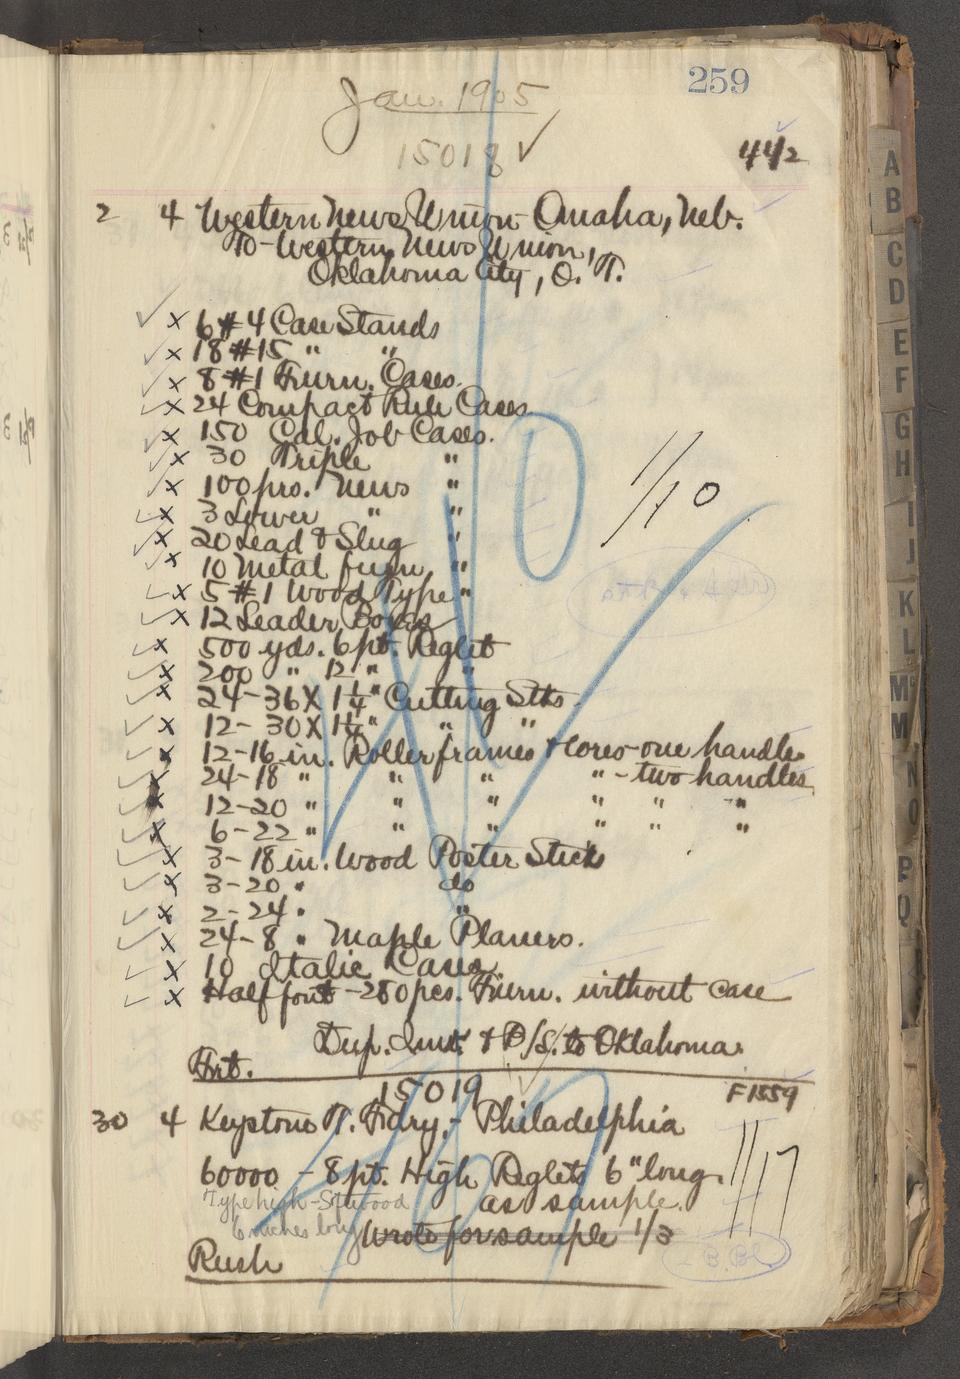 259
Jan. 1905
15018 ✓
44/2
2 4 Western News Union Omaha, Neb.
To Western News Union,
Oklahoma City, O. T.
✓ x 6 #4 Case Stands
✓ x 18 #15 " "
✓ x 8 #1 Furn. Cases.
✓ x 24 Compact Rule Cases
✓ x 150 Cal. Job Cases.
✓ x 30 Triple "
✓ x 100 prs. News "
✓ x 3 Lower " "
✓ x 20 Lead & Slug "
✓ x 10 Metal furn. "
✓ x 5 #1 Wood Type "
✓ x 12 Leader Boxes
✓ x 500 yds. 6 pt. Reglet
✓ x 200 " 12 " "
✓ x 24-36 X 1 1/4" Cutting Stks.
✓ x 12-30 X 1 1/4" " "
✓ x 12-16 in. Roller frames & cores-one handle
✓ x 24-18 " " " " - two handles
✓ x 12-20 " " " " " "
✓ x 6-22 " " " " " "
✓ x 3-18 in. Wood Poster Sticks
✓ x 3-20 " do
✓ x 2-24 " "
✓ x 24-8 " Maple Planers.
✓ x 10 Italic Cases.
✓ x Half font - 280 pcs. Furn. without case
1/10
Dup. Inv. & B/L to Oklahoma.
Frt.
15019
F1559
30 4 Keystone T. Fdry, - Philadelphia
60000 - 8 pt. High Reglets 6" long.
as sample.
Type high - Softwood
6 inches long
Wrote for sample 1/3
1/17
Rush
A
B
C
D
E
F
G
H
I
J
K
L
M
M
N
O
P
Q